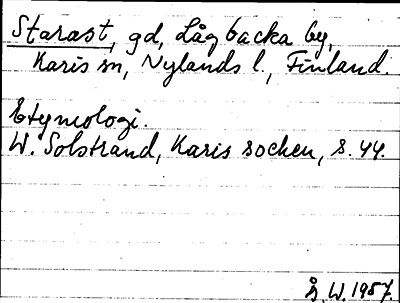 Starast, gd, Lågbacka by,
Karis sn, Nylands l., Finland.
Etymologi.
W. Solstrand, Karis socken, s. 44.
Å. W. 1957.